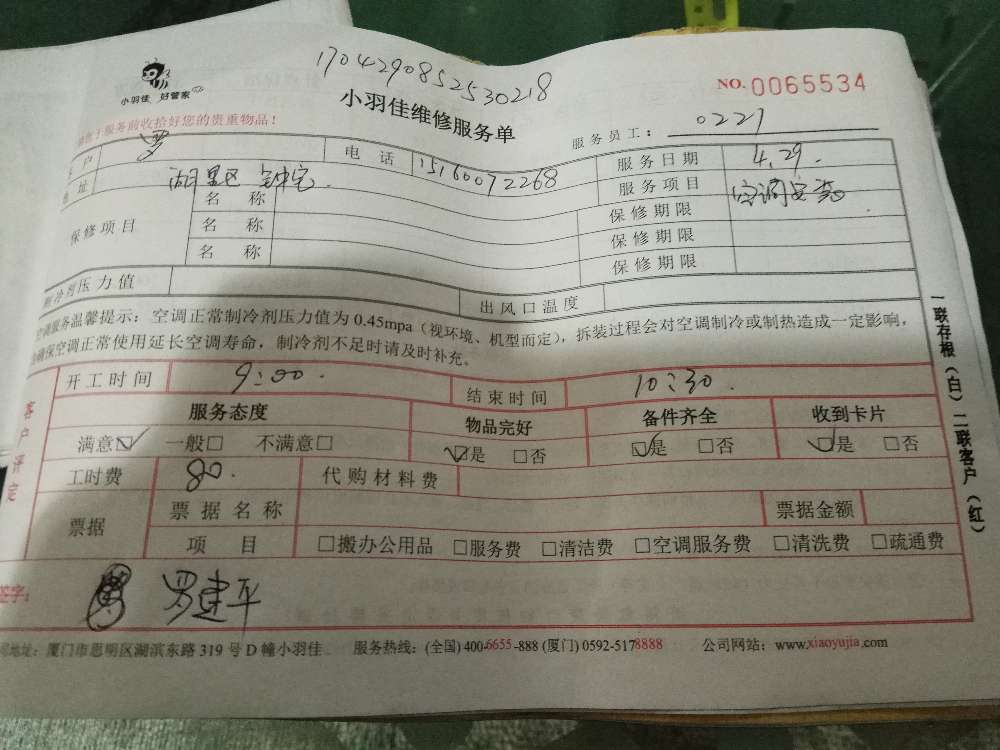 1704290852530218
小羽佳 好管家
NO.0065534
小羽佳维修服务单
服务前收拾好您的贵重物品！
服务员工： 0221
户 罗 电话 15160072268 服务日期 4.29.
地址 湖里区 钟宅. 服务项目 空调安装
保修项目 名称 保修期限
名称 保修期限
名称 保修期限
制冷剂压力值 出风口温度
空调服务温馨提示：空调正常制冷剂压力值为0.45mpa（视环境、机型而定），拆装过程会对空调制冷或制热造成一定影响，
确保空调正常使用延长空调寿命，制冷剂不足时请及时补充。
客户评定
开工时间 9:00. 结束时间 10:30.
服务态度 物品完好 备件齐全 收到卡片
满意☑ 一般□ 不满意□ ☑是 □否 ☑是 □否 ☑是 □否
工时费 80. 代购材料费
票据 票据名称 票据金额
项目 □搬办公用品 □服务费 □清洁费 □空调服务费 □清洗费 □疏通费
签字： 罗建平
地址：厦门市思明区湖滨东路319号D幢小羽佳 服务热线：(全国) 400-6655-888 (厦门) 0592-5178888 公司网站：www.xiaoyujia.com
一联存根（白）二联客户（红）